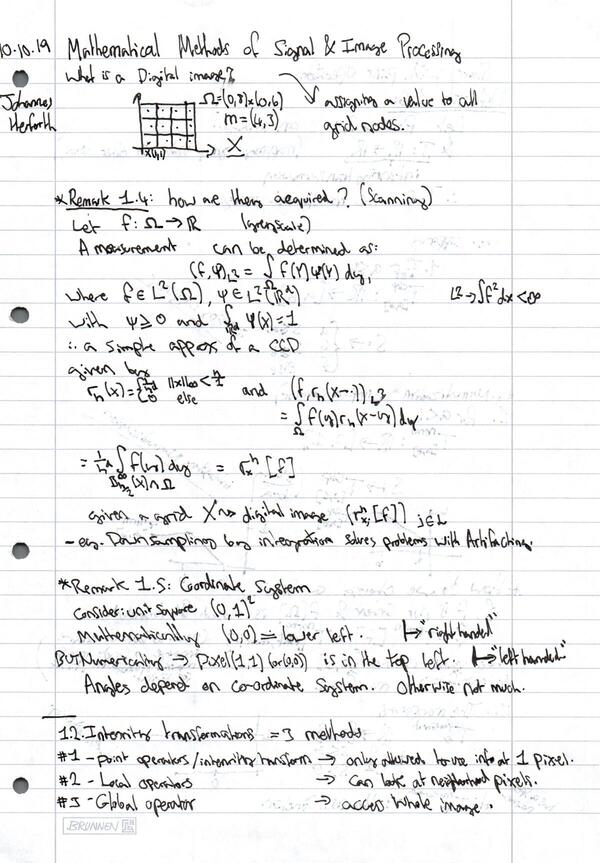 10.10.19 Mathematical Methods of Signal & Image Processing
What is a Digital image?
Johannes
Herforth
Ω=(0,8)×(0,6)
m=(4,3)
X
X(1,1)
assigning a value to all
grid nodes.
*Remark 1.4: how are they acquired? (Scanning)
Let f: Ω → ℝ (greyscale)
A measurement can be determined as:
(f,ψ)_L² = ∫_Ω f(y)ψ(y) dy,
where f ∈ L²(Ω), ψ ∈ L²(ℝᵈ) L² → ∫f²dx < ∞
with ψ ≥ 0 and ∫_ℝᵈ ψ(x) = 1
∴ a simple approx of a CCD
given by
r_h(x) = { 1/hᵈ ||x||∞ < h/2 and (f, r_h(x-·))_L²
0 else
= ∫_Ω f(y) r_h(x-y) dy
= 1/hᵈ ∫ f(y) dy = r_x^h [f]
B^∞_h/2 (x) ∩ Ω
given a grid X ⇝ digital image (r_xj^h [f]) j∈
- eg. Downsampling by integration solves problems with Artifacting.
*Remark 1.5: Coordinate System
Consider: unit square (0,1)²
Mathematically (0,0) = lower left. ↦ "right handed"
BUT Numerically → Pixel (1,1) (or (0,0)) is in the top left. ↦ "left handed"
Angles depend on co-ordinate System. Otherwise not much.
1.2. Intensity transformations = 3 methods
#1 - point operators/intensity transform → only allowed to use info at 1 pixel.
#2 - Local operators → can look at neighborhood pixels.
#3 - Global operator → access whole image.
BRUNNEN